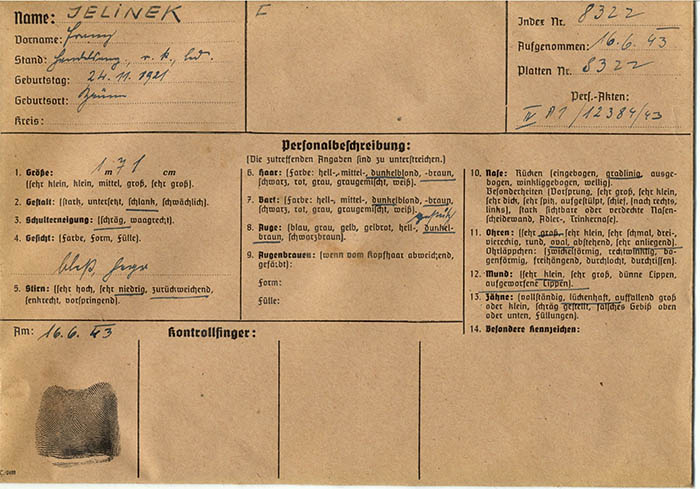 Name: JELINEK
F
Index Nr. 8322
Vorname: Franz
Aufgenommen: 16.6.43
Stand: r. k., led.
Platten Nr. 8322
Geburtstag: 24.11.1921
Geburtsort: Brünn
Pers.-Akten:
Kreis:
IV A1 /12384/43
Personalbeschreibung:
(Die zutreffenden Angaben sind zu unterstreichen.)
1. Größe: 1 m 71 cm
(sehr klein, klein, mittel, groß, sehr groß).
2. Gestalt: (stark, untersetzt, schlank, schwächlich).
3. Schulterneigung: (schräg, waagrecht).
4. Gesicht: (Farbe, Form, Fülle).
blaß, hager
5. Stirn: (sehr hoch, sehr niedrig, zurückweichend,
senkrecht, vorspringend).
6. Haar: (Farbe: hell-, mittel-, dunkelblond, -braun,
schwarz, rot, grau, graugemischt, weiß).
7. Bart: (Farbe: hell-, mittel-, dunkelblond, -braun,
schwarz, rot, grau, graugemischt, weiß).
8. Auge: (blau, grau, gelb, gelbrot, hell-, dunkel-
braun, schwarzbraun).
9. Augenbrauen: (wenn vom Kopfhaar abweichend,
gefärbt):
Form:
Fülle:
10. Nase: Rücken (eingebogen, gradlinig, ausge-
bogen, winkliggebogen, wellig).
Besonderheiten (Vorsprung, sehr groß, sehr klein,
sehr dick, sehr spitz, aufgestülpt, schief, (nach rechts,
links), stark sichtbare oder verdeckte Nasen-
scheidewand, Adler-, Trinkernase).
11. Ohren: (sehr groß, sehr klein, sehr schmal, drei-,
viereckig, rund, oval, abstehend, sehr anliegend)
Ohrläppchen: (zwickelförmig, rechtwinklig, bo-
genförmig, freihängend, durchlocht, durchrissen).
12. Mund: (sehr klein, sehr groß, dünne Lippen,
aufgeworfene Lippen).
13. Zähne: (vollständig, lückenhaft, auffallend groß
oder klein, schräg gestellt, falsches Gebiß oben
oder unten, Füllungen).
14. Besondere Kennzeichen:
Am: 16.6.43
Kontrollfinger: